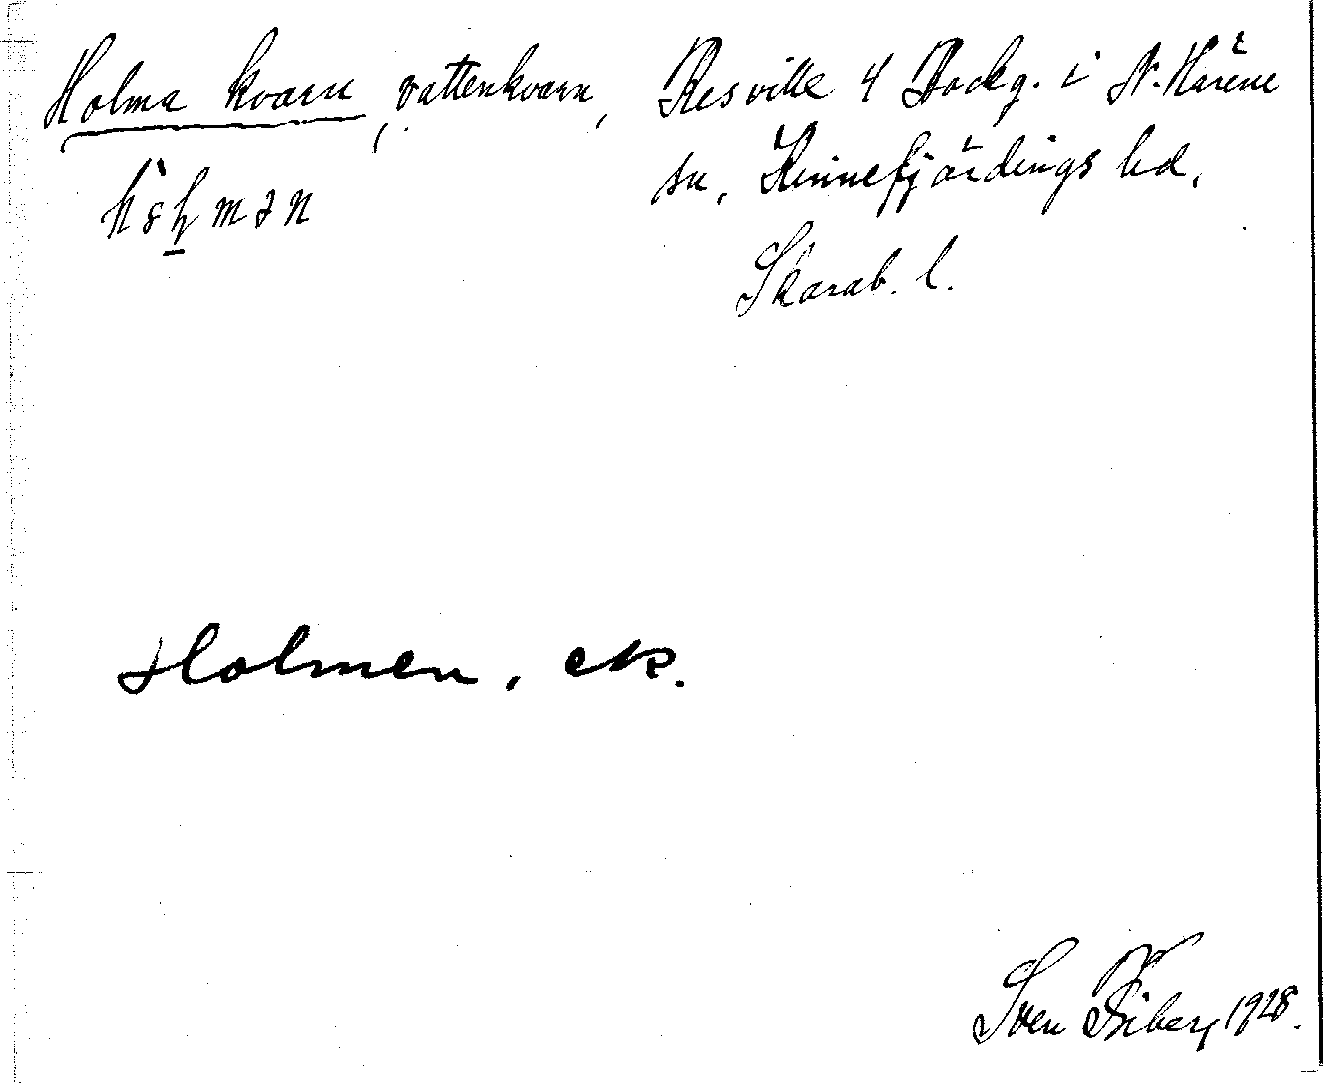 Holma kvarn, vattenkvarn, Resville 4 Backg. i N. Härene
sn, Kinnefjärdings hd,
Skarab. l.
Holmen, ek.
Sven 1928.